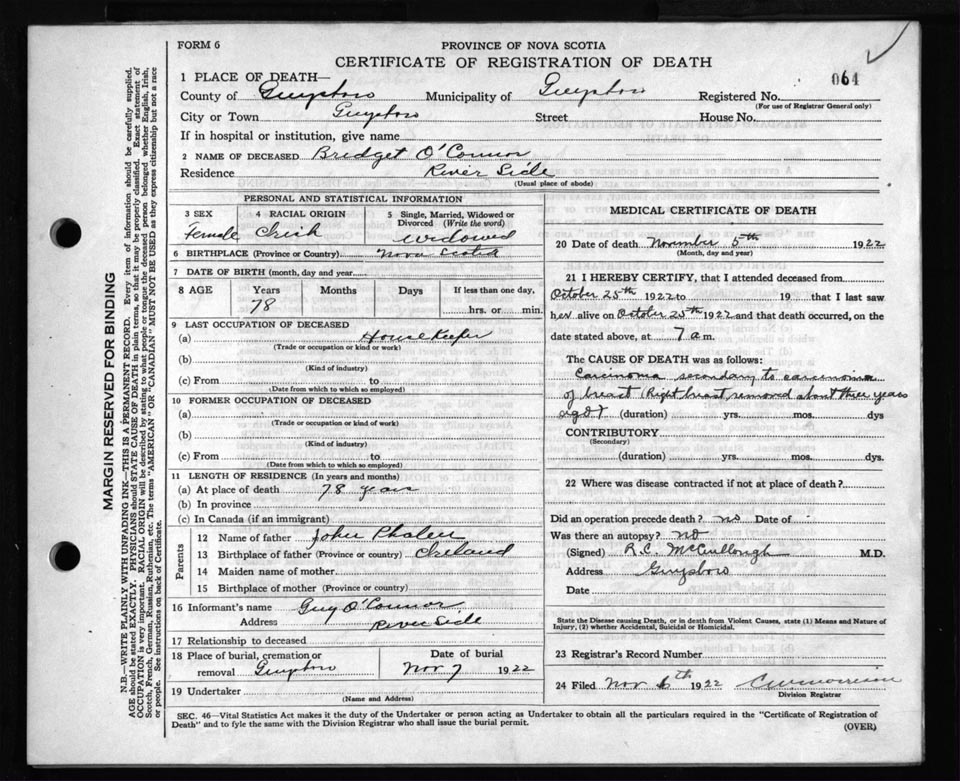 FORM 6
PROVINCE OF NOVA SCOTIA
CERTIFICATE OF REGISTRATION OF DEATH
064
1 PLACE OF DEATH—
County of Guysboro Municipality of Guysboro Registered No.
(For use of Registrar General only)
City or Town Guysboro Street House No.
If in hospital or institution, give name
2 NAME OF DECEASED Bridget O'Connor
Residence River Side
(Usual place of abode)
PERSONAL AND STATISTICAL INFORMATION
3 SEX 4 RACIAL ORIGIN 5 Single, Married, Widowed or Divorced (Write the word)
Female Irish widowed
6 BIRTHPLACE (Province or Country) Nova Scotia
7 DATE OF BIRTH (month, day and year)
8 AGE Years Months Days If less than one day,
78 hrs. or min.
9 LAST OCCUPATION OF DECEASED
(a) House Keeper
(Trade or occupation or kind of work)
(b)
(Kind of industry)
(c) From to
(Date from which to which so employed)
10 FORMER OCCUPATION OF DECEASED
(a)
(Trade or occupation or kind of work)
(b)
(Kind of industry)
(c) From to
(Date from which to which so employed)
11 LENGTH OF RESIDENCE (In years and months)
(a) At place of death 78 years
(b) In province
(c) In Canada (if an immigrant)
Parents
12 Name of father John Phalen
13 Birthplace of father (Province or country) Ireland
14 Maiden name of mother
15 Birthplace of mother (Province or country)
16 Informant's name Guy O'Connor
Address River Side
17 Relationship to deceased
18 Place of burial, cremation or removal Guysboro
Date of burial
Nov 7 1922
19 Undertaker
(Name and Address)
MEDICAL CERTIFICATE OF DEATH
20 Date of death November 5th 1922
(Month, day and year)
21 I HEREBY CERTIFY, that I attended deceased from
October 25th 1922 to 19 that I last saw
her alive on October 25th 1922 and that death occurred, on the
date stated above, at 7 a m.
The CAUSE OF DEATH was as follows:
Carcinoma secondary to carcinoma
of breast (Right breast removed about three years
ago) (duration) yrs. mos. dys
CONTRIBUTORY
(Secondary)
(duration) yrs. mos. dys.
22 Where was disease contracted if not at place of death?
Did an operation precede death? no Date of
Was there an autopsy? no
(Signed) R.C. McCullough M.D.
Address Guysboro
Date
State the Disease causing Death, or in death from Violent Causes, state (1) Means and Nature of
Injury, (2) whether Accidental, Suicidal or Homicidal.
23 Registrar's Record Number
24 Filed Nov 6th 1922
Division Registrar
SEC. 46—Vital Statistics Act makes it the duty of the Undertaker or person acting as Undertaker to obtain all the particulars required in the "Certificate of Registration of
Death" and to fyle the same with the Division Registrar who shall issue the burial permit.
(OVER)
MARGIN RESERVED FOR BINDING
N.B.—WRITE PLAINLY WITH UNFADING INK—THIS IS A PERMANENT RECORD. Every item of information should be carefully supplied.
AGE should be stated EXACTLY. PHYSICIANS should STATE CAUSE OF DEATH in plain terms, so that it may be properly classified. Exact statement of
OCCUPATION is very important. RACIAL ORIGIN will be described by stating to what people or tongue the deceased person belonged whether English, Irish,
Scotch, French, German, Russian, Ruthenian, etc. The terms "AMERICAN" OR "CANADIAN" MUST NOT BE USED as they express citizenship but not a race
or people. See instructions on back of Certificate.